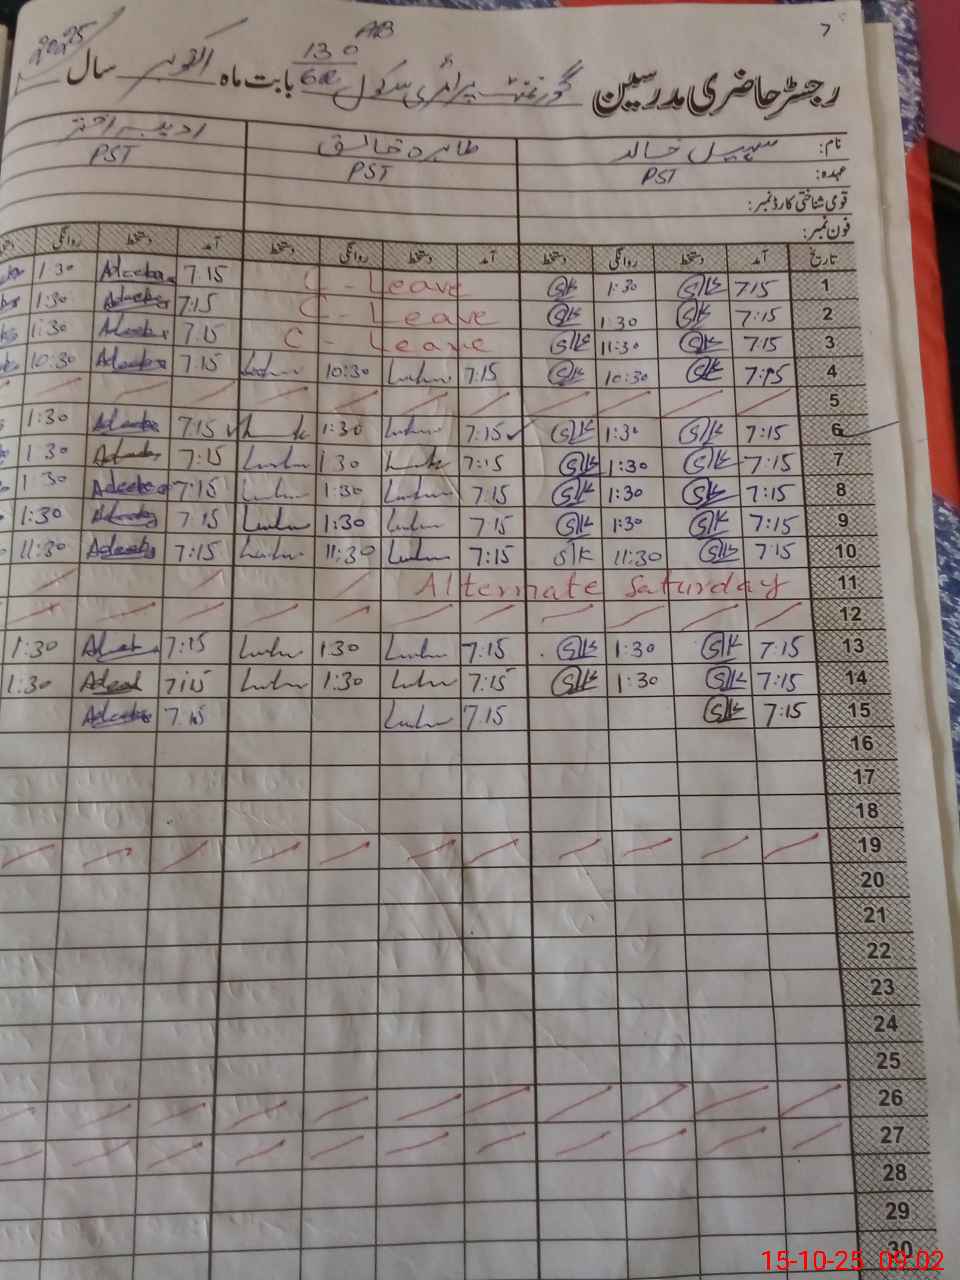 7
رجسٹر حاضری مدرسین گورنمنٹ پرائمری سکول 130/6R بابت ماہ اکتوبر سال 2025
نام: سہیل خالد طاہرہ خالق ادیبہ اختر
عہدہ: PST PST PST
قومی شناختی کارڈ نمبر:
فون نمبر:
تاریخ آمد دستخط روانگی دستخط آمد دستخط روانگی دستخط آمد دستخط روانگی
1 7:15 S/K 1:30 S/K C - Leave 7:15 Adeeba 1:30
2 7:15 S/K 1:30 S/K C - Leave 7:15 Adeeba 1:30
3 7:15 S/K 11:30 S/K C - Leave 7:15 Adeeba 1:30
4 7:15 S/K 10:30 S/K 7:15 10:30 7:15 Adeeba 10:30
5
6 7:15 S/K 1:30 S/K 7:15 1:30 7:15 Adeeba 1:30
7 7:15 S/K 1:30 S/K 7:15 1:30 7:15 Adeeba 1:30
8 7:15 S/K 1:30 S/K 7:15 1:30 7:15 Adeeba 1:30
9 7:15 S/K 1:30 S/K 7:15 1:30 7:15 Adeeba 1:30
10 7:15 S/K 11:30 S/K 7:15 11:30 7:15 Adeeba 11:30
11 Alternate Saturday
12
13 7:15 S/K 1:30 S/K 7:15 1:30 7:15 1:30
14 7:15 S/K 1:30 S/K 7:15 1:30 7:15 1:30
15 7:15 S/K 7:15 7:15 Adeeba
16
17
18
19
20
21
22
23
24
25
26
27
28
29
30
15-10-25 09:02